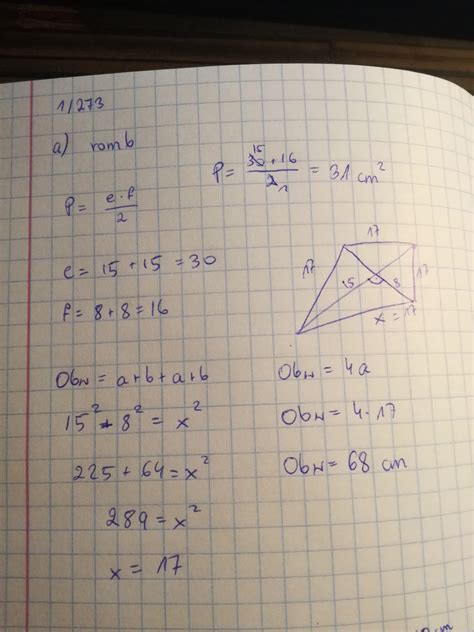 1/273
a) romb
P = e · f / 2
P = 15 30 + 16 / 2 1 = 31 cm²
e = 15 + 15 = 30
f = 8 + 8 = 16
17
17
15
8
17
x = 17
Obw = a + b + a + b
15² + 8² = x²
225 + 64 = x²
289 = x²
x = 17
Obw = 4a
Obw = 4 · 17
Obw = 68 cm